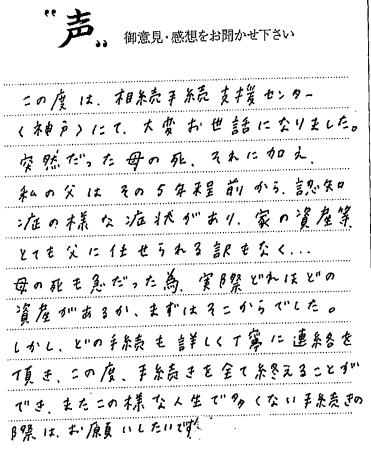 "声" 御意見・感想をお聞かせ下さい
この度は、相続手続支援センター
〈神戸〉にて、大変お世話になりました。
突然だった母の死、それに加え、
私の父はその5年程前から、認知
症の様な症状があり、家の資産等、
とても父に任せられる訳もなく…
母の死も急だった為、実際どれほどの
資産があるか、まずはそこからでした。
しかし、どの手続も詳しく丁寧に連絡を
頂き、この度、手続きを全て終えることが
でき、またこの様な人生で多くない手続きの
際は、お願いしたいです。